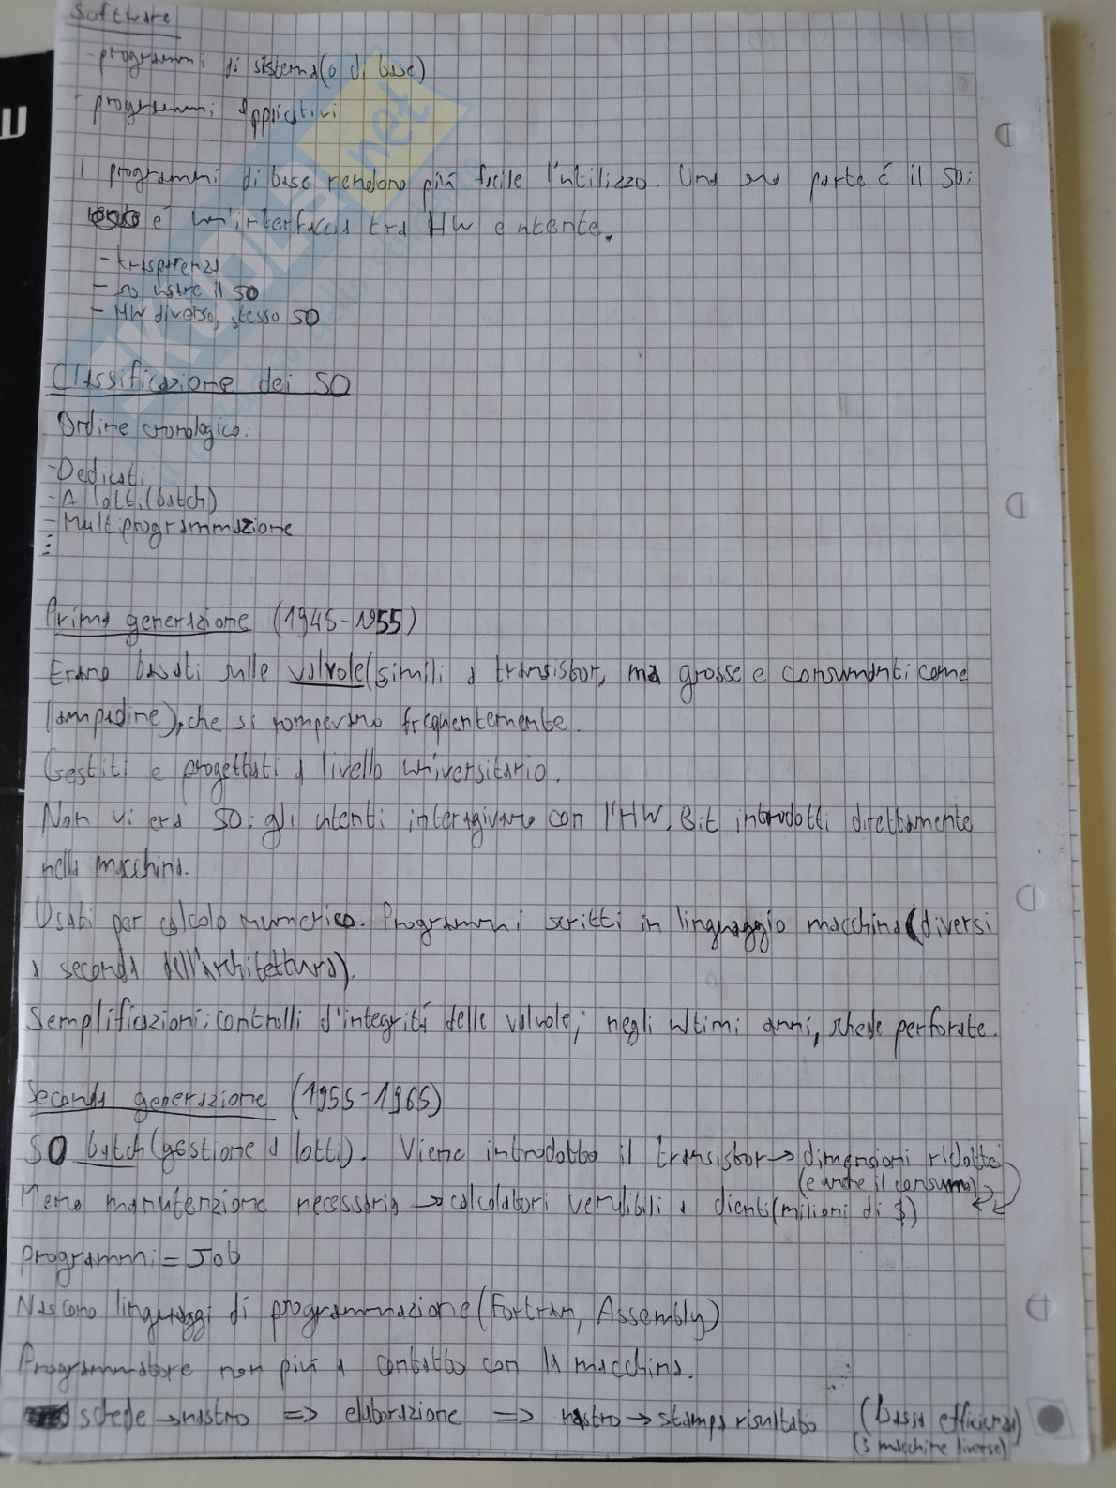 Software
- programmi di sistema (o di base)
- programmi applicativi
I programmi di base rendono più facile l'utilizzo. Una sua parte è il SO:
esso è un'interfaccia tra HW e utente.
- trasparenza
- so usare il SO
- HW diverso, stesso SO
Classificazione dei SO
Ordine cronologico.
- Dedicati
- A lotti (batch)
- Multiprogrammazione
Prima generazione (1945-1955)
Erano basati sulle valvole (simili a transistor, ma grosse e consumanti come
lampadine), che si rompevano frequentemente.
Gestiti e progettati a livello universitario.
Non vi era SO: gli utenti interagivano con l'HW. Bit introdotti direttamente
nella macchina.
Usati per calcolo numerico. Programmi scritti in linguaggio macchina (diversi
a seconda dell'architettura).
Semplificazioni: controlli d'integrità delle valvole; negli ultimi anni, schede perforate.
Seconda generazione (1955-1965)
SO batch (gestione a lotti). Viene introdotto il transistor → dimensioni ridotte
(e anche il consumo)
Meno manutenzione necessaria → calcolatori vendibili a clienti (milioni di $)
Programmi = Job
Nascono linguaggi di programmazione (Fortran, Assembly)
Programmatore non più a contatto con la macchina.
schede → nastro ⇒ elaborazione ⇒ nastro → stampa risultato (bassa efficienza)
(3 macchine diverse)
SKUOLA.net